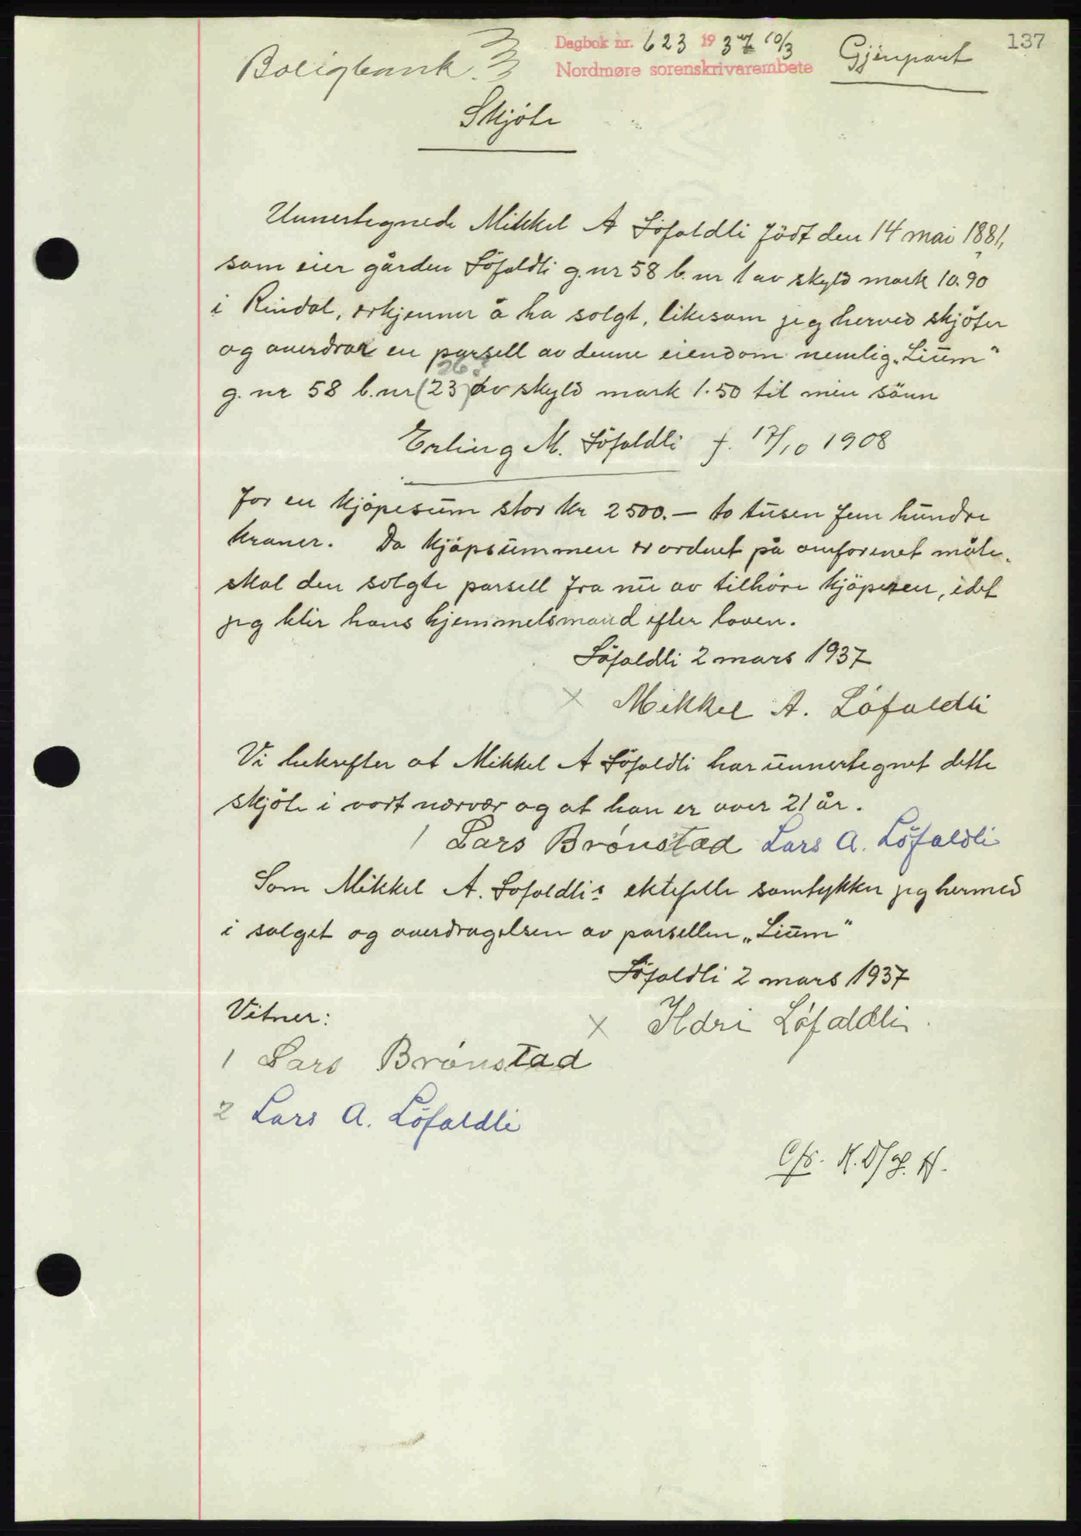 137
Dagbok nr. 623 1937 10/3
Nordmøre sorenskrivarembete
Gjenpart
Boligbank.
Skjöte
Unnertegnede Mikkel A Löfaldli födt den 14 mai 1881,
som eier gården Löfaldli g.nr 58 b.nr 1 av skyld mark 10.90
i Rindal, erkjenner å ha solgt, likesom jeg herved skjöter
og overdrar en parsell av denne eiendom nemlig „Lium"
g. nr 58 b.nr (23) av skyld mark 1.50 til min sönn
26?
Erling M. Löfaldli f. 17/10 1908
for en kjöpesum stor kr 2500.— to tusen fem hundre
kroner. Da kjöpsummen er ordnet på omforenet måte.
skal den solgte parsell fra nu av tilhöre kjöperen, idet
jeg blir hans hjemmelsmand efter loven.
Löfaldli 2 mars 1937
x Mikkel A. Löfaldli
Vi bekrefter at Mikkel A Löfaldli har unnertegnet dette
skjöte i vort nærvær og at han er over 21 år.
1 Lars Brønstad Lars A. Löfaldli
Som Mikkel A. Lofaldli's ektefelle samtykker jeg hermed
i salget og overdragelsen av parsellen „Lium"
Löfaldli 2 mars 1937
Vitner:
x Ildri Löfaldli.
1 Lars Brønstad
2 Lars A. Löfaldli